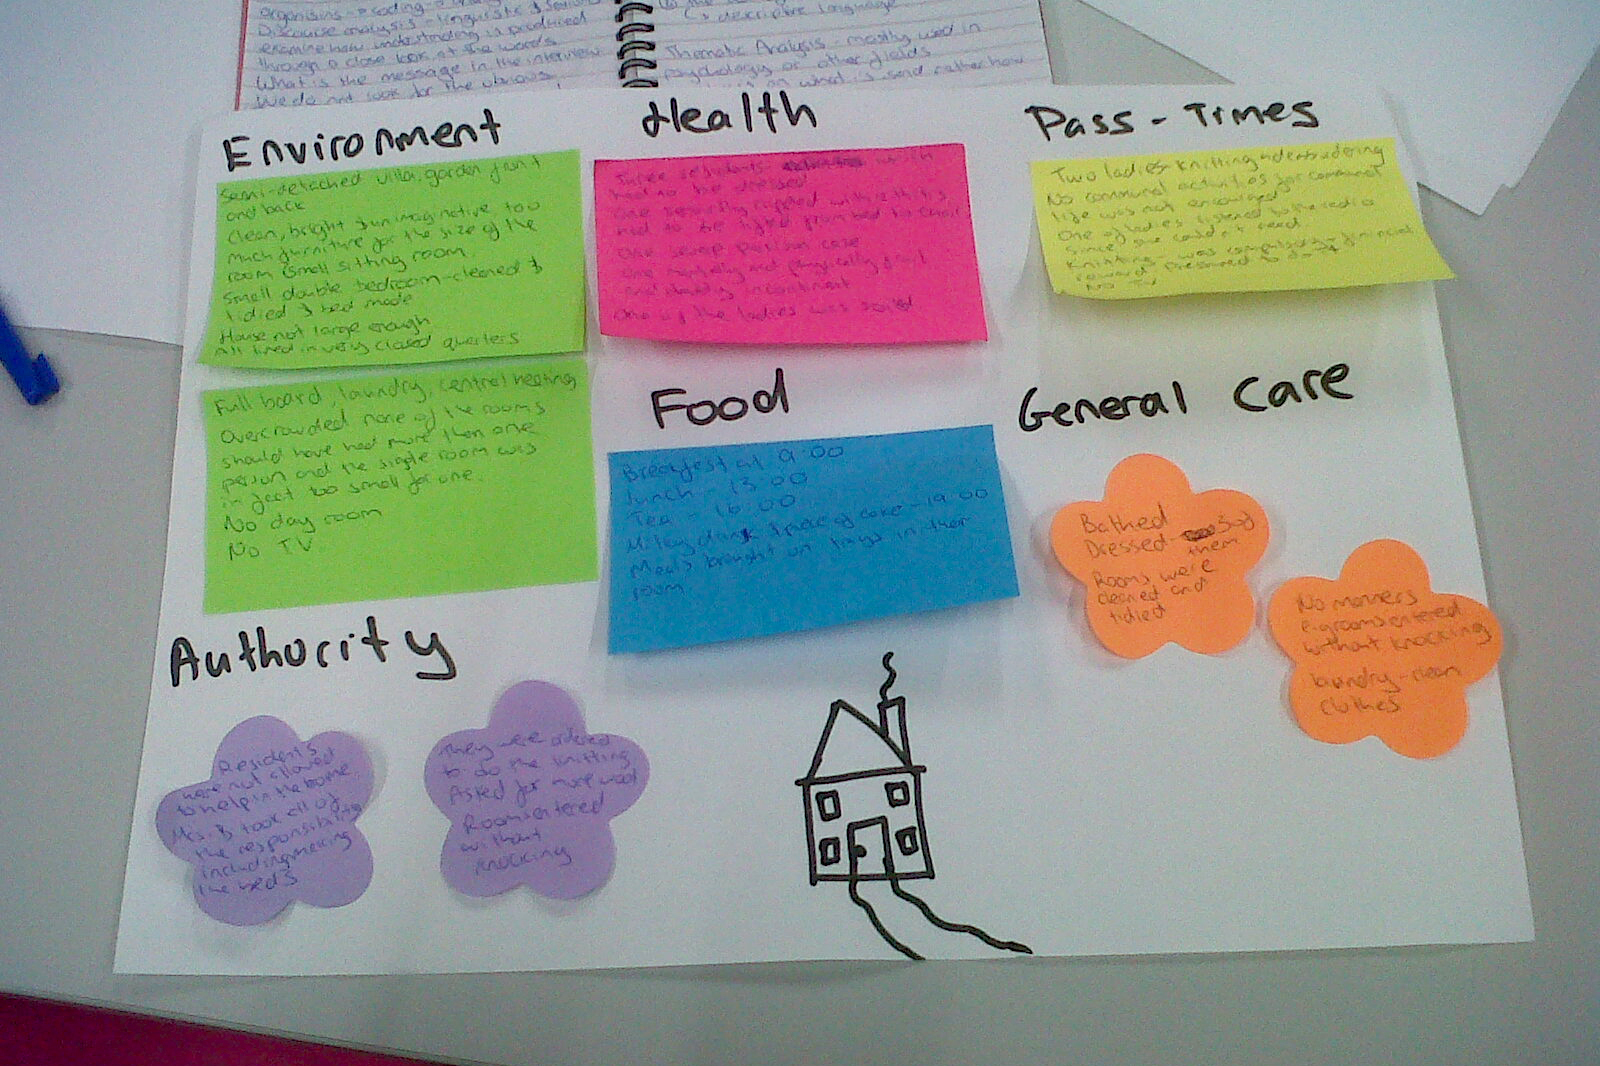 organisms → coding
Discourse analysis - linguistic &
examine how understanding is produced
through a close look at the words
What is the message in the interview
We do not look for the obvious
↳ descriptive language
Thematic Analysis - mostly used in
psychology or other fields
on what is said rather how
Environment
Semi-detached villa, garden front
and back
clean, bright & unimaginative too
much furniture for the size of the
room (small sitting room
Small double bedroom - cleaned &
tidied & bed made
House not large enough
All lived in very closed quarters
Full board, laundry, central heating
Overcrowded none of the rooms
should have had more than one
person and the single room was
in fact too small for one.
No day room
No TV
Health
Three residents - which
had to be dressed
One severely crippled with arthritis
had to be lifted from bed to chair
One severe case
One mentally and physically frail
and incontinent
One of the ladies was soiled
Pass-Times
Two ladies knitting
No communal activities for communal
life was not encouraged
One of ladies listened to the radio
since she couldn't read.
Knitting - was financial
reward pressured to do it
No TV
Food
Breakfest at 9:00
Lunch - 13:00
Tea - 16:00
Milky drink & piece of cake - 19:00
Meals brought on trays in their
room.
General Care
Bathed
Dressed - 3 of
them
Rooms were
cleaned and
tidied
No manners
e.g rooms entered
without knocking
laundry - clean
clothes
Authority
Residents
were not allowed
to help in the home
Mrs. B took all of
the responsibility
including making
the beds
They were ordered
to do the knitting
Asked for more wool
Rooms entered
without
knocking